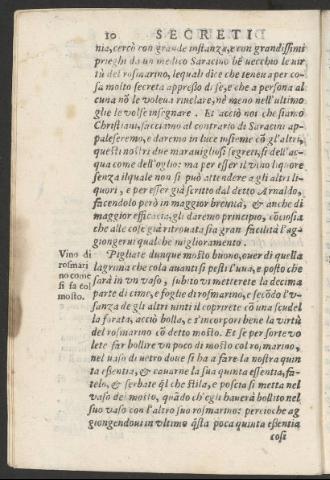 10 SECRETI
nia, cercò con grande instanza, e con grandissimi
prieghi da un medico Saracino bē uecchio le uir
tù del rosmarino, lequali dice che teneua per co-
sa molto secreta appresso di se, e che a persona al
cuna nō le voleua riuelare, nè meno nell'ultimo
glie le volse insegnare. Et acciò noi che siamo
Christiani, facciamo al contrario di Saracini ap-
paleseremo, e daremo in luce insieme cō gl'altri,
questi nostri due marauigliosi segreti, sì dell'ac-
qua come dell'oglio: ma per esser il vino liquore
senza ilquale non si può attendere a gli altri li-
quori, e per esser già scritto dal detto Arnaldo,
facendolo però in maggior breuità, & anche di
maggior efficacia, gli daremo principio, cōciosia
che alle cose già ritrouata sia gran facilità l'ag-
giongerui qualche miglioramento.
Vino di
rosmari
no come
si fa col
mosto.
Pigliate dunque mosto buono, ouer di quella
lagrima che cola auanti si pesti l'uua, e posto che
sarà in vn vaso, subito vi metterete la decima
parte di cime, e foglie di rosmarino, e secōdo l'v-
sanza de gli altri uini il coprirete cō una scudel
la forata, acciò bolla, e s'incorpori bene la virtù
del rosmarino cō detto mosto. Et se per sorte vo
lete far bollire vn poco di mosto col rosmarino,
nel uaso di uetro doue si ha a fare la nostra quin
ta essentia, & cauarne la sua quinta essentia, fa-
telo, & serbate ql che stila, e poscia si metta nel
vaso del mosto, quādo ch'egli hauerà bollito nel
suo vaso con l'altro suo rosmarino: percioche ag
giongendoui in vltimo q̄sta poca quinta essentia
così